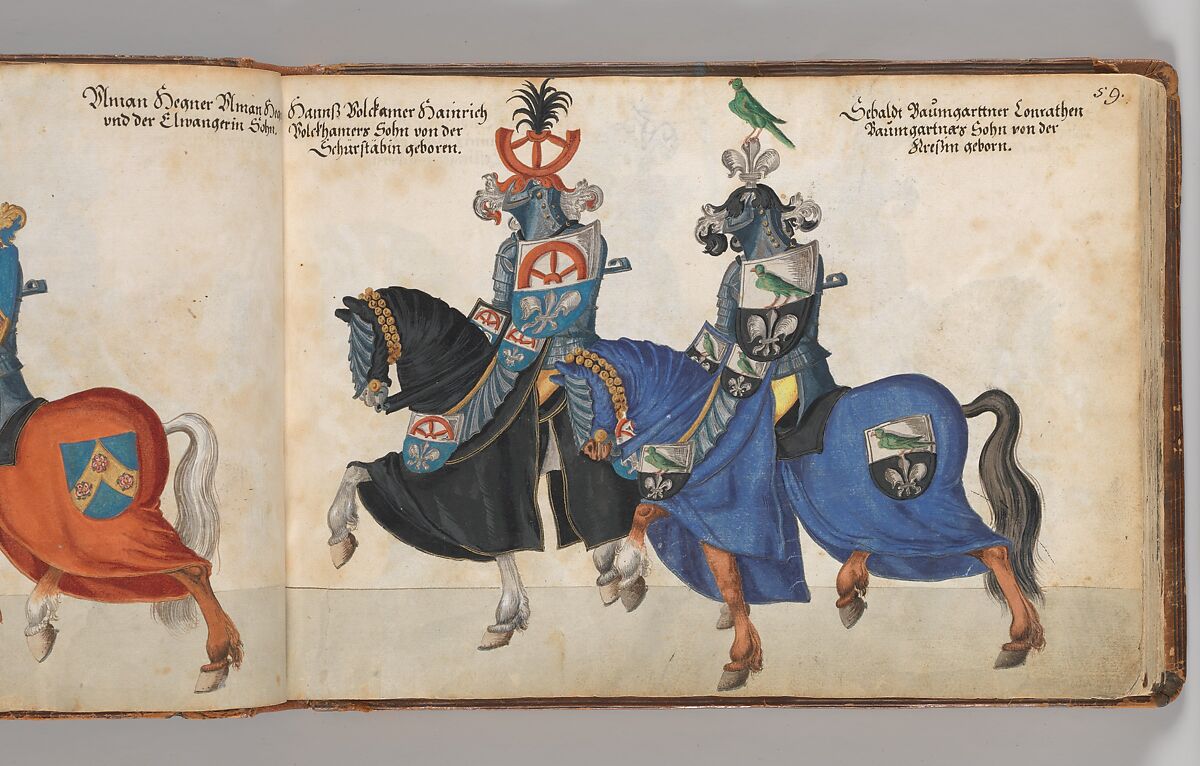 Vlman Hegner Vlman Heg
vnd der Elwangerin Sohn.
Hannß Volckamer Hainrich
Volckhamers Sohn von der
Schürstabin geboren.
Sebaldt Baumgarttner Conrathen
Baumgartners Sohn von der
Kreßin geborn.
59.